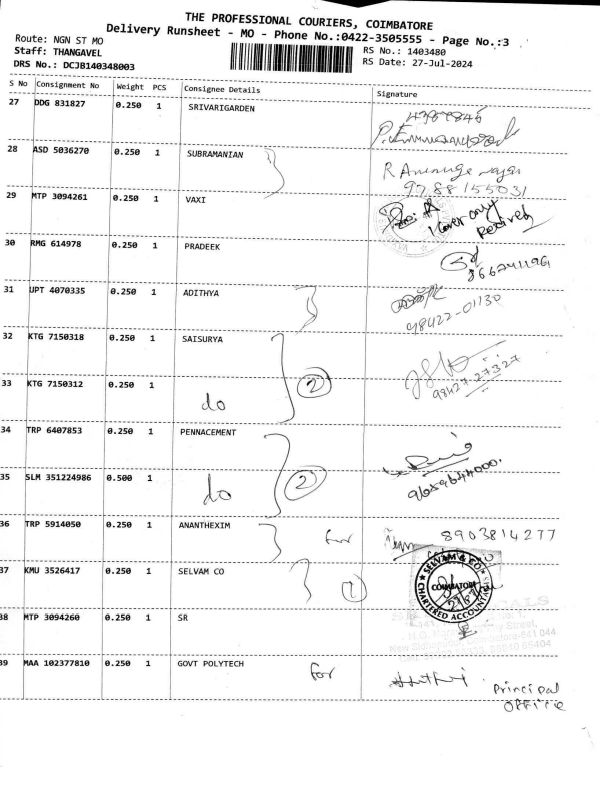 THE PROFESSIONAL COURIERS, COIMBATORE
Delivery Runsheet - MO - Phone No.:0422-3505555 - Page No.:3
Route: NGN ST MO
RS No.: 1403480
Staff: THANGAVEL
RS Date: 27-Jul-2024
DRS No.: DCJB140348003
S No Consignment No Weight PCS Consignee Details Signature
27 DDG 831827 0.250 1 SRIVARIGARDEN
28 ASD 5036270 0.250 1 SUBRAMANIAN
9788155031
29 MTP 3094261 0.250 1 VAXI
1 Cover only
Received
30 RMG 614978 0.250 1 PRADEEK
31 UPT 4070335 0.250 1 ADITHYA
98422-01130
32 KTG 7150318 0.250 1 SAISURYA
33 KTG 7150312 0.250 1 do 2
98427-27327
34 TRP 6407853 0.250 1 PENNACEMENT
35 SLM 351224986 0.500 1 do 2
36 TRP 5914050 0.250 1 ANANTHEXIM for 8903814277
37 KMU 3526417 0.250 1 SELVAM CO 1
SELVAM & CO
COIMBATORE
CHARTERED ACCOUNTANTS
38 MTP 3094260 0.250 1 SR
39 MAA 102377810 0.250 1 GOVT POLYTECH for
Principal
OFFICE